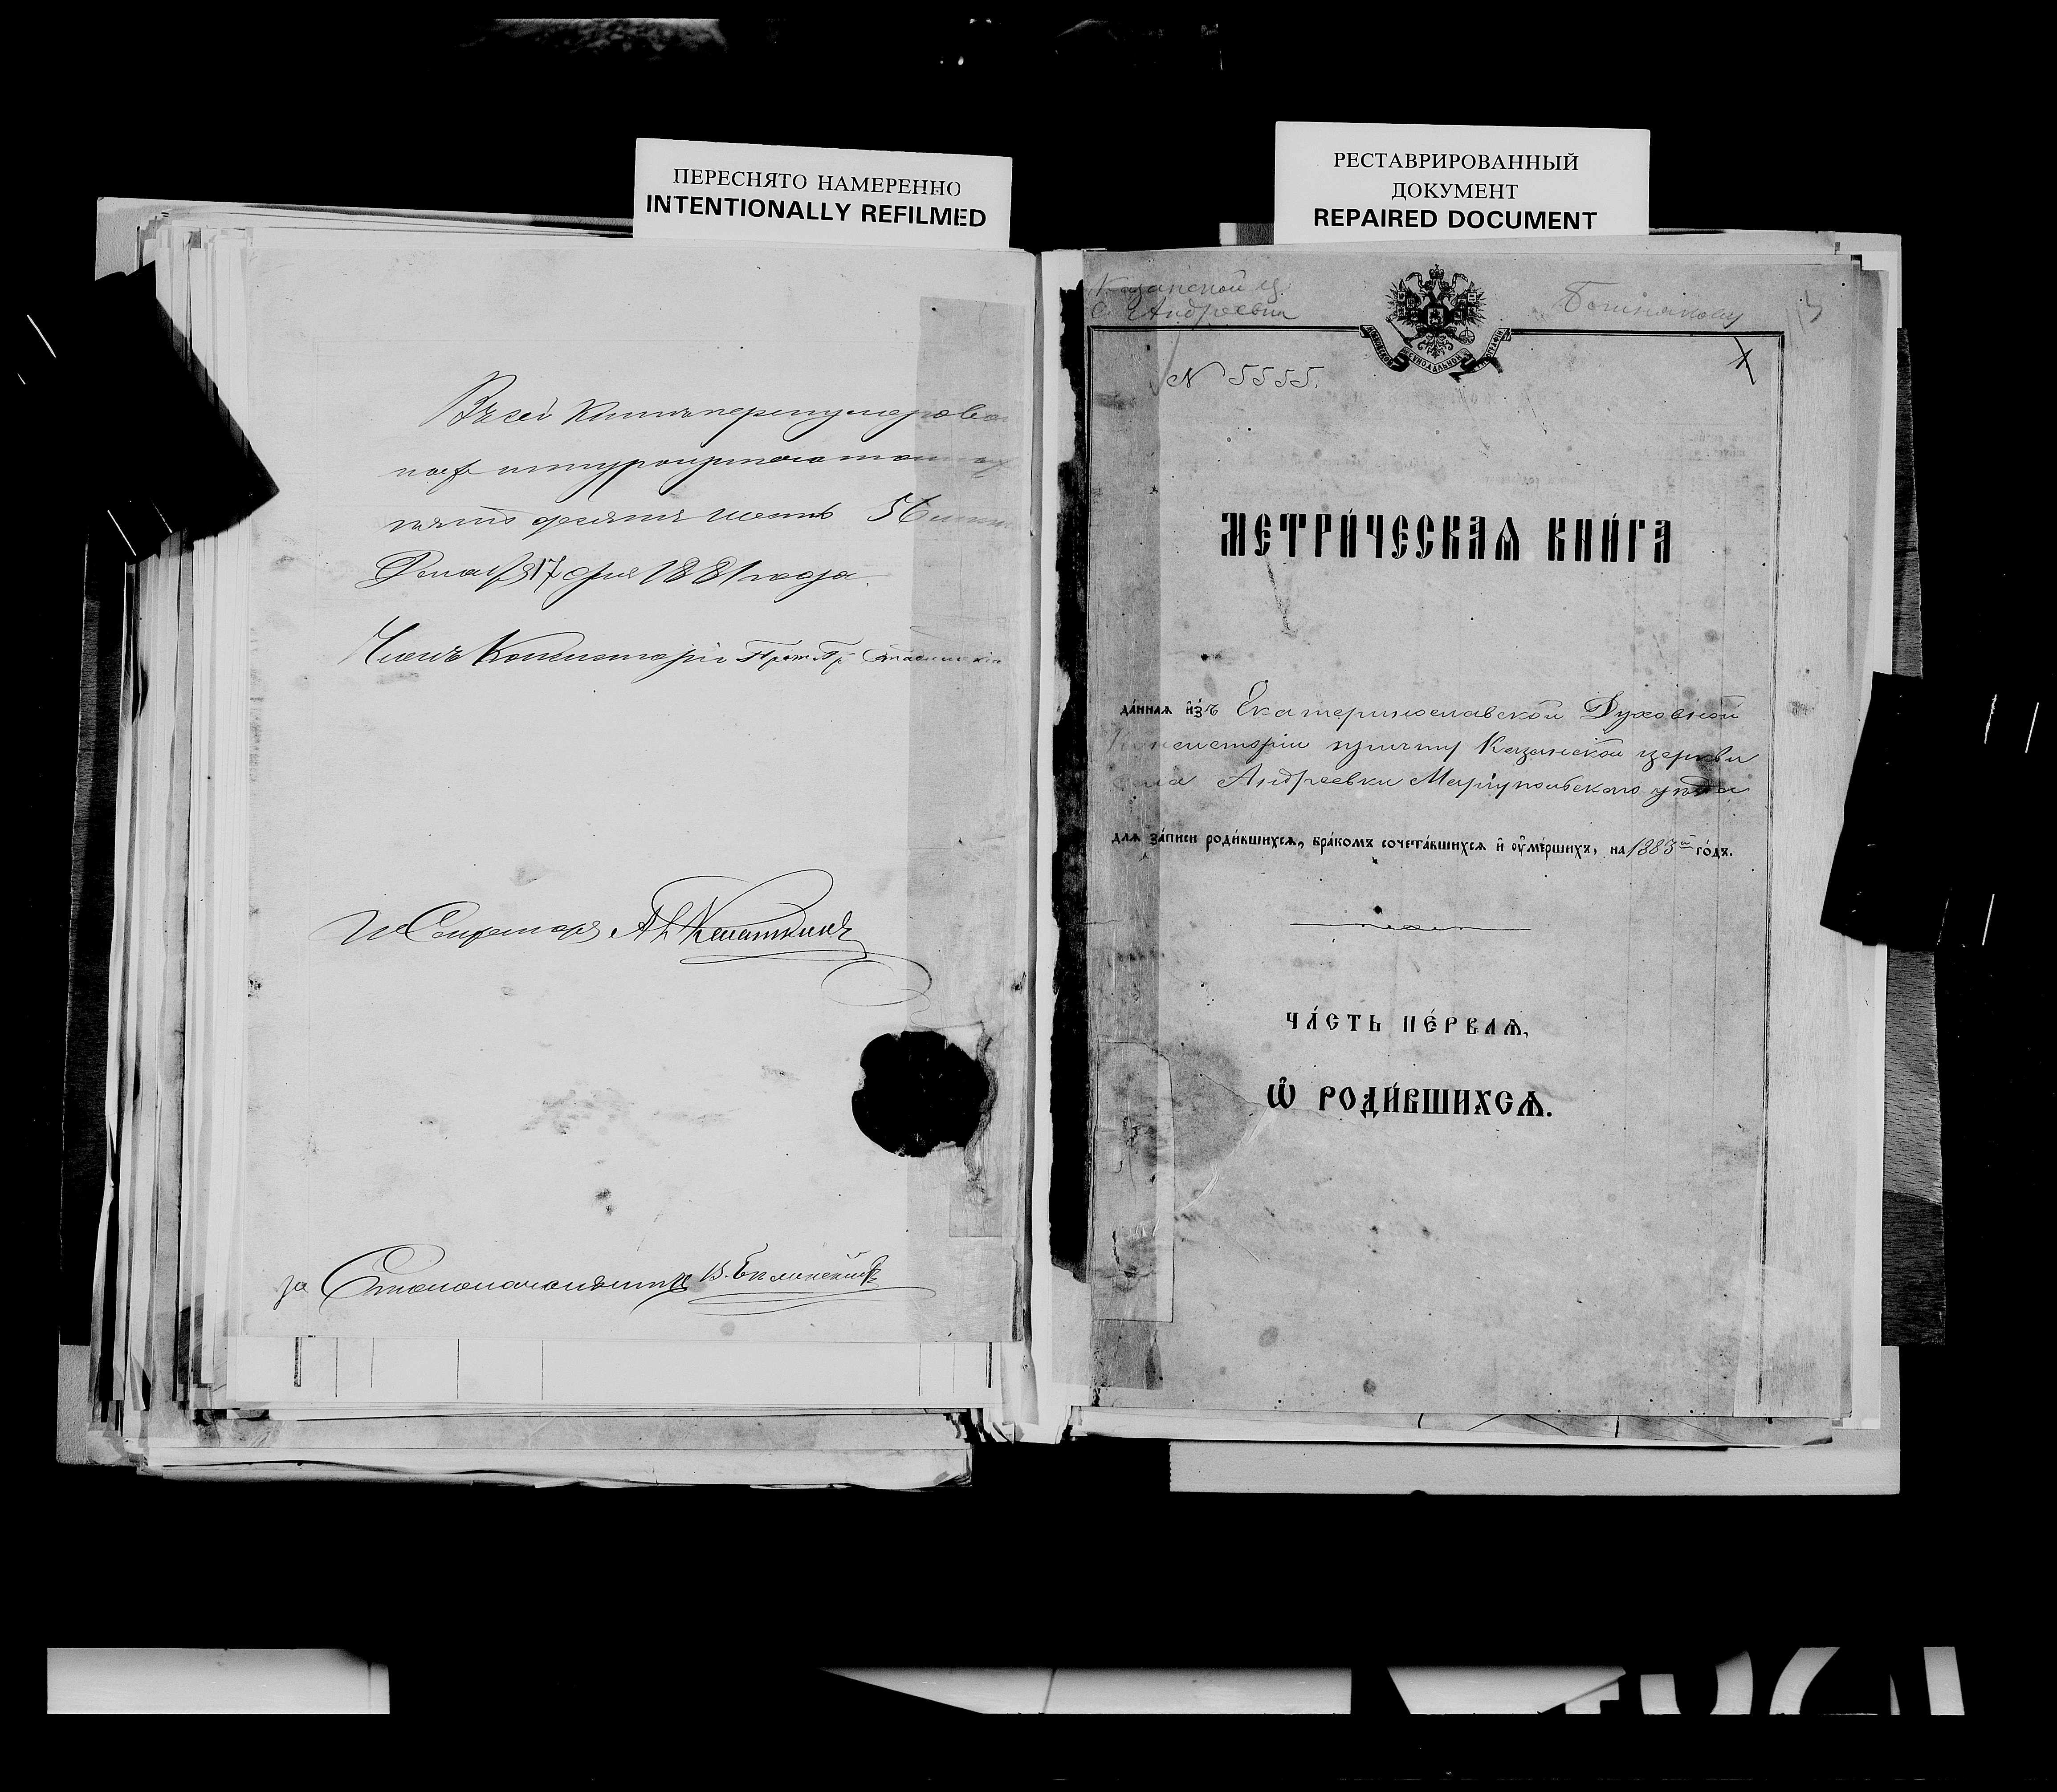 ПЕРЕСНЯТО НАМЕРЕННО
INTENTIONALLY REFILMED
РЕСТАВРИРОВАННЫЙ
ДОКУМЕНТ
REPAIRED DOCUMENT
Въ сей книгѣ перенумеров
пятьдесятъ шесть 56
17 дня 1881 года.
Членъ Консисторіи
Секретарь
за Столоначальника В.
Казанской ц.
с. Андреевки
N 5555.
МЕТРИ́ЧЕСКАѦ КНИ́ГА
да́ннаѧ и҆́зъ Екатеринославской Духовной
Консисторіи причту Казанской церкви
села Андреевки Маріупольскаго уѣзда
длѧ за́писи роди́вшихсѧ, бра́комъ сочета́вшихсѧ и҆ ᲂу҆ме́ршихъ, на 1883й го́дъ.
ЧА́СТЬ ПЕ́РВАѦ,
Ѡ҆ РОДИ́ВШИХСѦ.